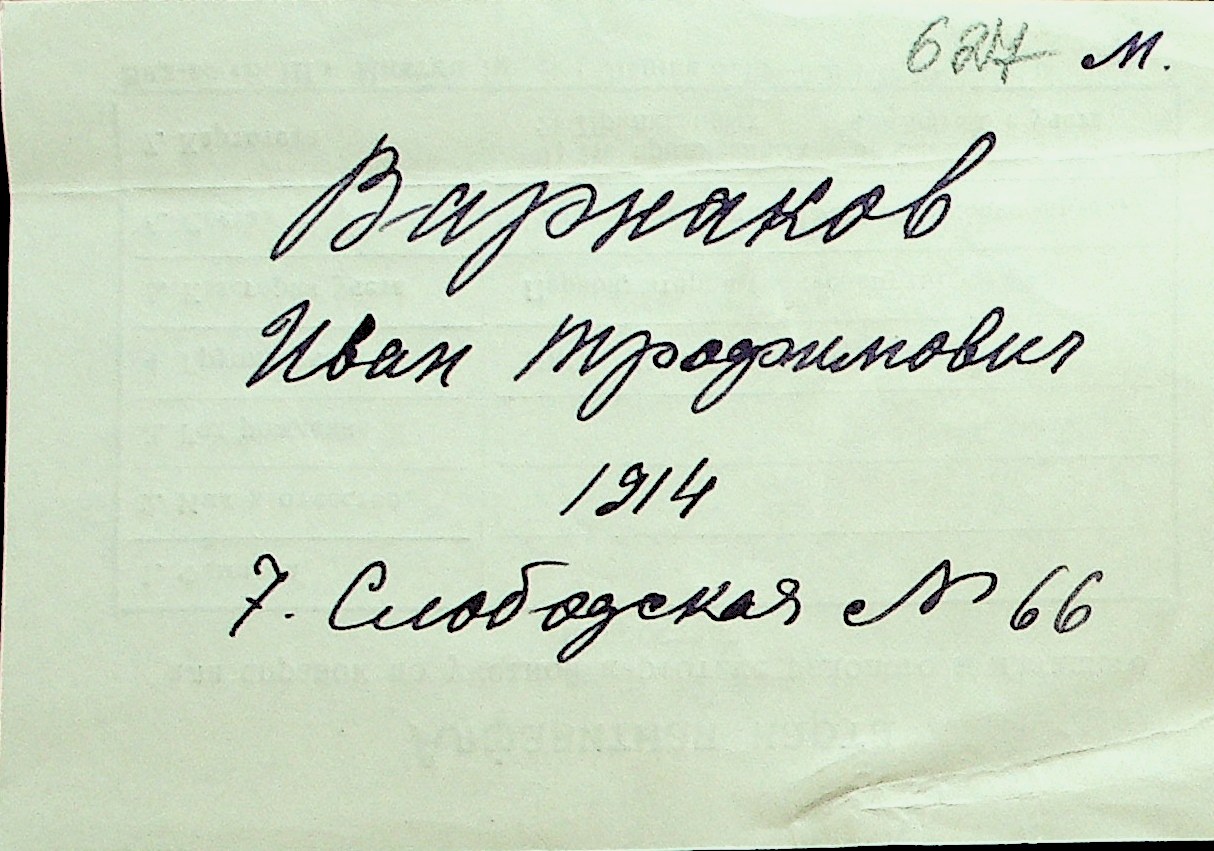 627 м.
Варнаков
Иван Трофимович
1914
7. Слободская № 66